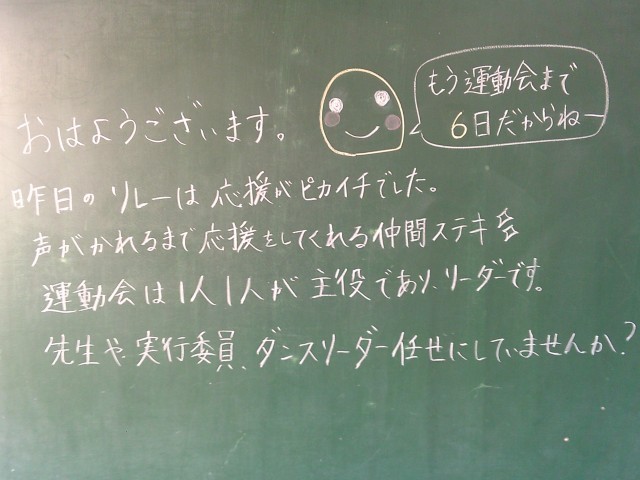 おはようございます。
もう運動会まで
6日だからねー
昨日のリレーは応援がピカイチでした。
声がかれるまで応援をしてくれる仲間ステキ
運動会は1人1人が主役であり、リーダーです。
先生や実行委員、ダンスリーダー任せにしていませんか?